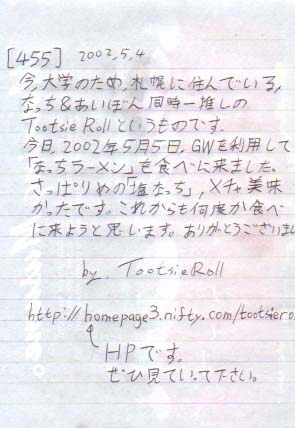 [455] 2002,5,4
今,大学のため,札幌に住んでいる,
なっち&あいぼん同時一推しの
Tootsie Rollというものです.
今日,2002年5月5日,GWを利用して
「なっちラーメン」を食べに来ました。
さっぱりめの「塩なっち」,メチャ美味
かったです。これからも何度か食べ
に来ようと思います。ありがとうございまし
by. TootsieRoll
http://homepage3.nifty.com/tootsiero
HPです。
ぜひ見ていって下さい。